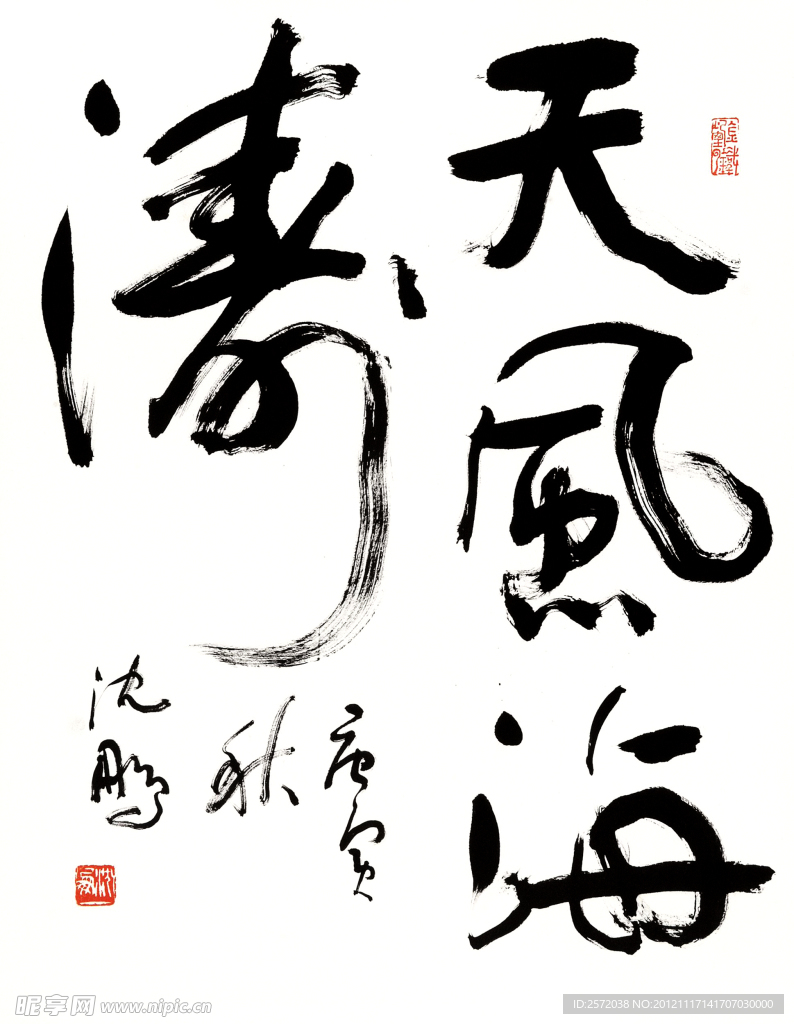 天風海
濤
庚寅
秋
沈鹏
昵享网 www.nipic.cn
ID:2572038 NO:20121117141707030000